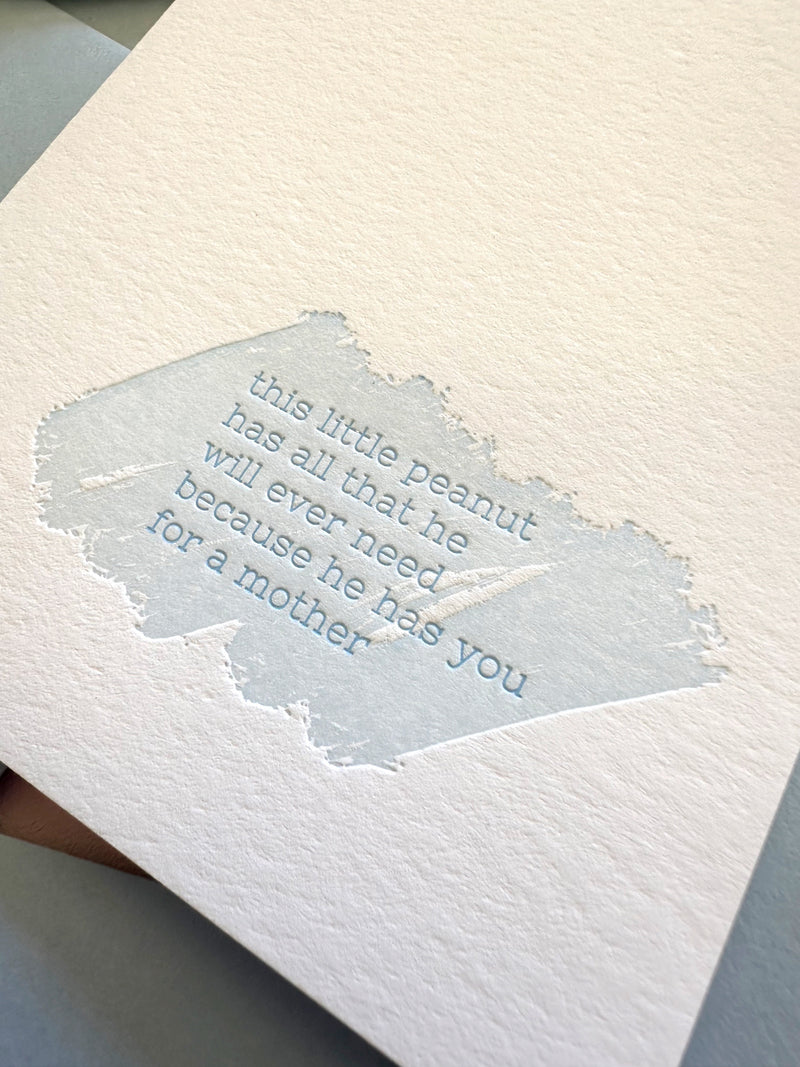 this little peanut
has all that he
will ever need
because he has you
for a mother